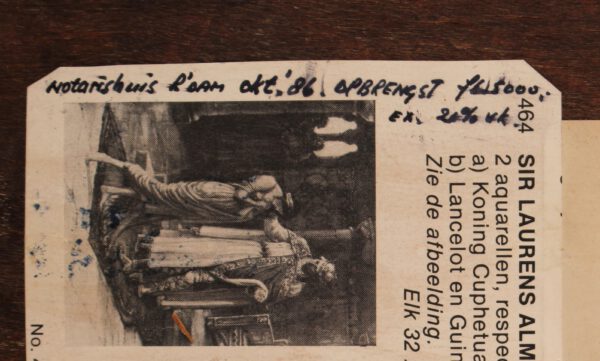 NOTARISHUIS R'DAM okt.'86. OPBRENGST
EX. 20%
464 SIR LAURENS ALM
2 aquarellen, respe
a) Koning Cuphetua
b) Lancelot en Guin
Zie de afbeelding.
Elk 32
No.